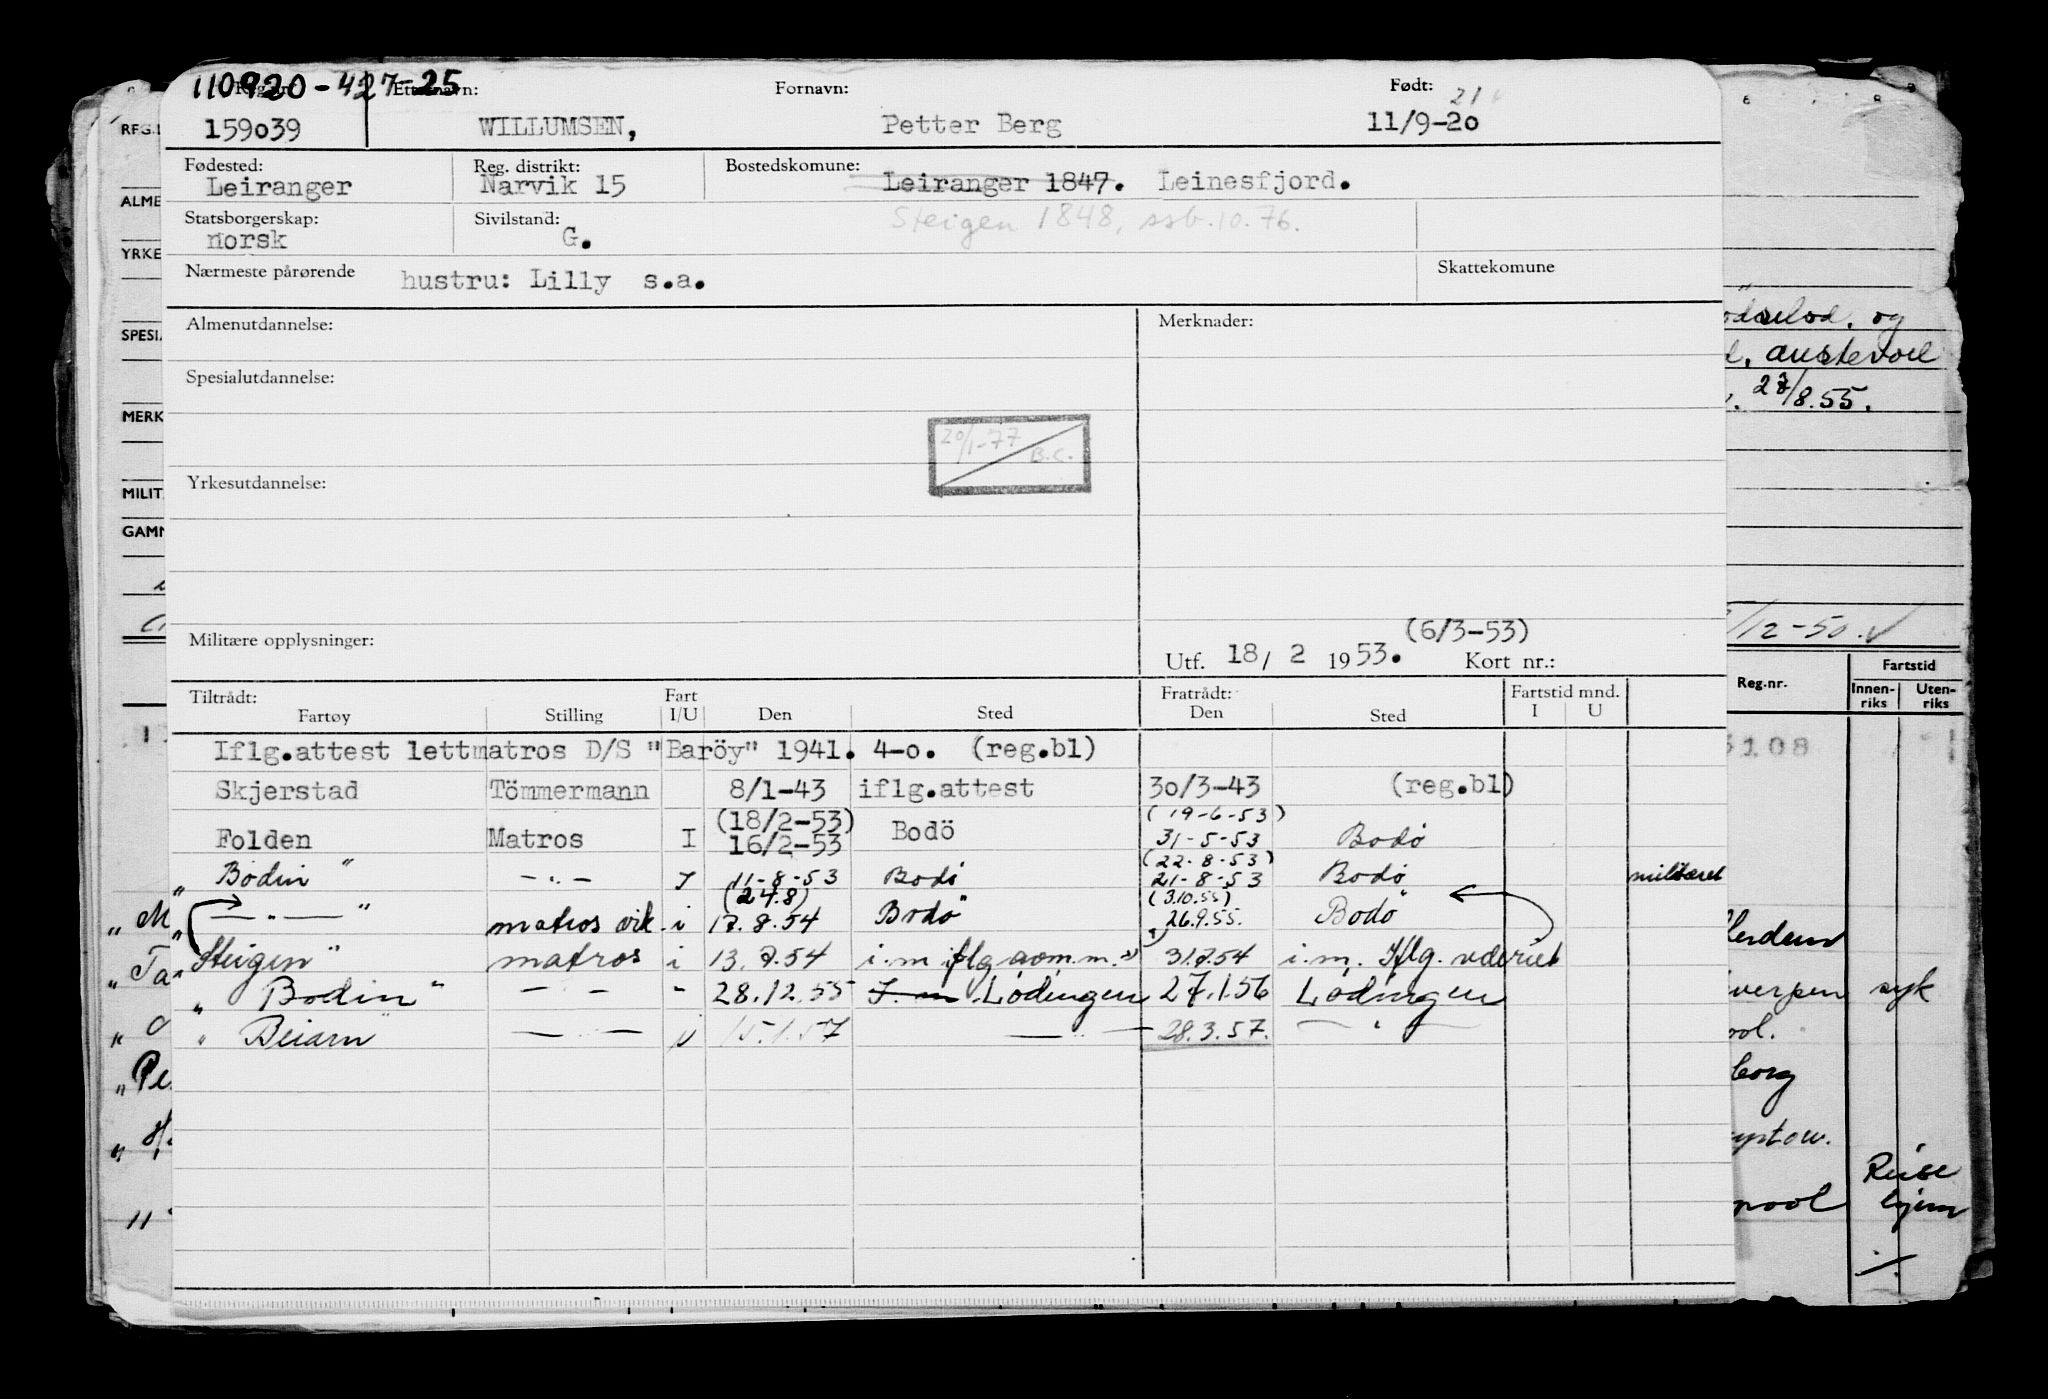 110920-427-25
Reg.nr. Etternavn: Fornavn: Født:
21
159o39 WILLUMSEN, Petter Berg 11/9-2o
Fødested: Reg. distrikt: Bostedskomune:
Leiranger Narvik 15 Leiranger 1847. Leinesfjord.
Statsborgerskap: Sivilstand: Steigen 1848, ssb.10.76.
norsk G.
Nærmeste pårørende hustru: Lilly s.a. Skattekomune
Almenutdannelse: Merknader:
Spesialutdannelse:
20/1-77
B.C.
Yrkesutdannelse:
Militære opplysninger: (6/3-53)
Utf. 18/ 2 1953. Kort nr.:
Tiltrådt: Fart Fratrådt: Fartstid mnd.
Fartøy Stilling I/U Den Sted Den Sted I U
Iflg.attest lettmatros D/S "Baröy" 1941. 4-o. (reg.bl)
Skjerstad Tömmermann 8/1-43 iflg.attest 3o/3-43 (reg.bl)
(18/2-53) (19-6-53)
Folden Matros I 16/2-53 Bodö 31-5-53 Bodö
(22-8-53)
" Bodin " -"- I 11-8-53 Bodö 21-8-53 Bodö militæret
(24.8) (3.10.55)
" —"— " matros vik. i 17.8.54 Bodö 26.9.55. Bodö
Steigen " matros i 13.7.54 i.m iflg 31.7.54 i.m. Iflg.
" Bodin " — — " 28.12.55 I. m Lödingen 27.1.56 Lödingen
" Beiarn " — — 15.1.57 —"— 28.3.57. —"—
REG.
ALME
YRKE
SPESIA
MERK
MILIT
GAMM
og
austevoll
27/8.55.
/12-50. ✓
Fartstid
Reg.nr. Innen-riks Uten-riks
5108
verpen syk
ool.
borg
Reise
pool hjem